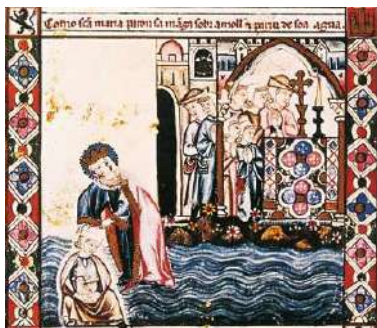 Como scã maria parou sa mãga sobr amoll ⁊ pariu de soa agua.